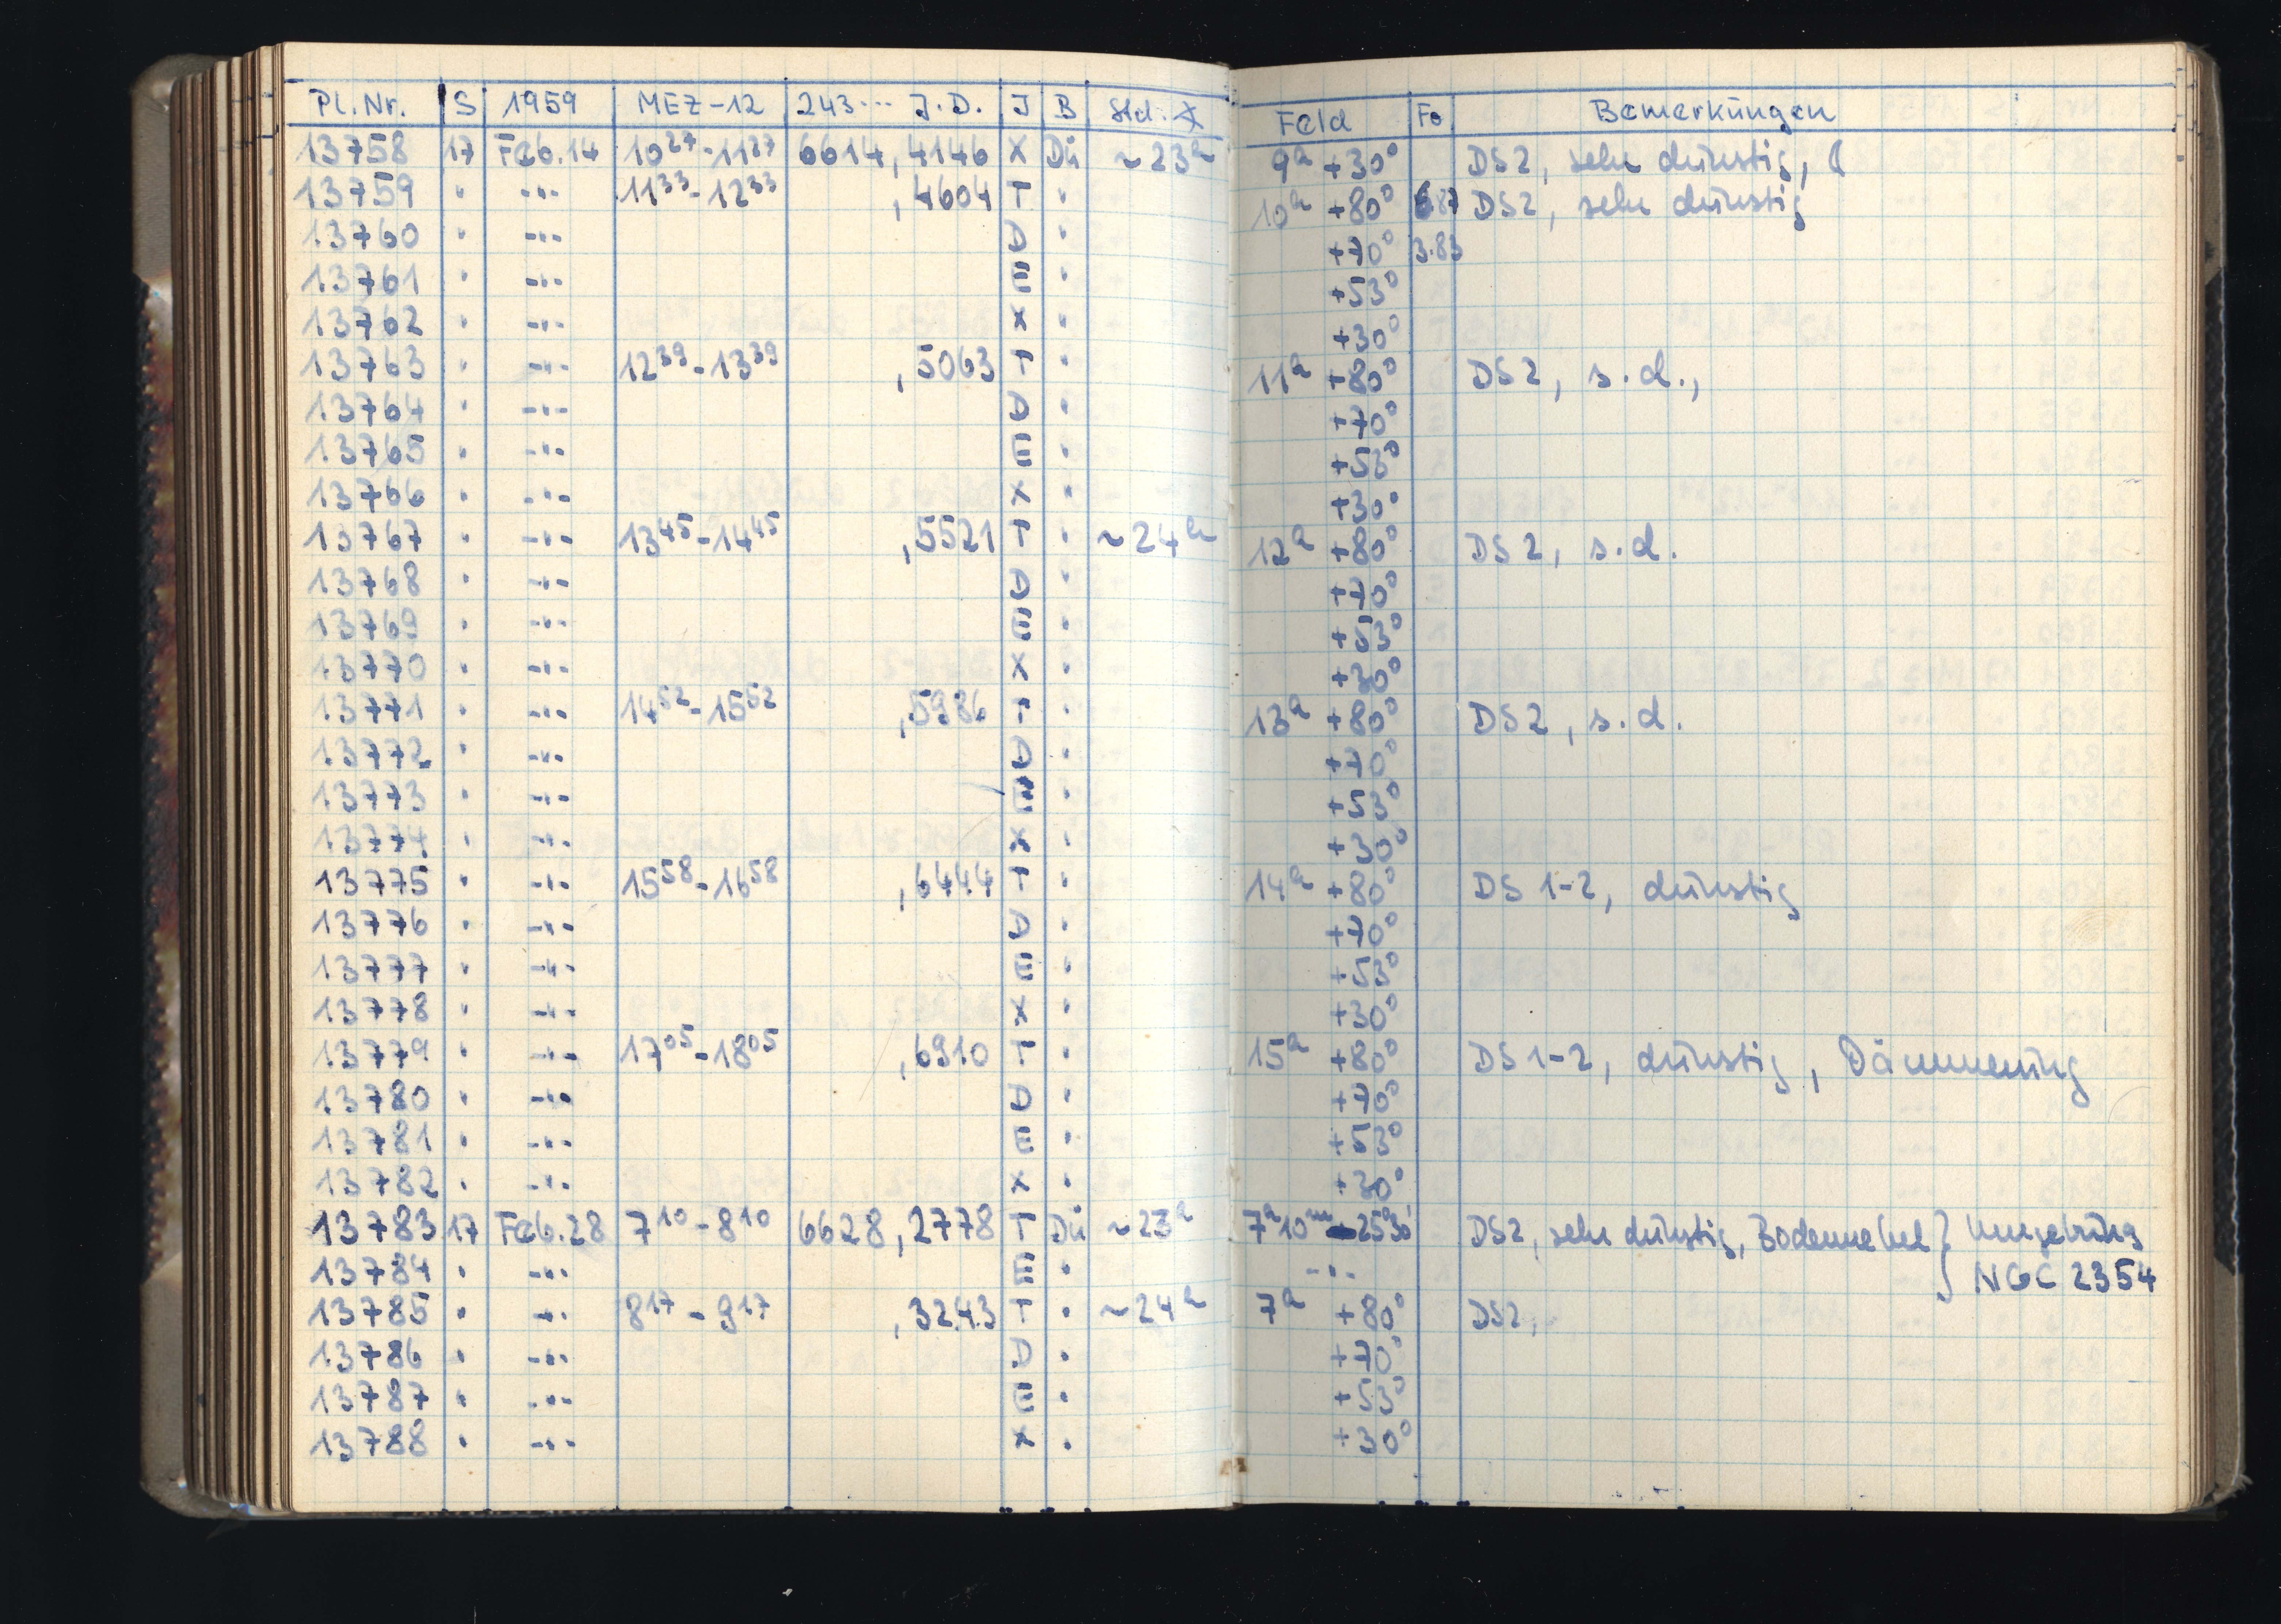 Pl.Nr. S 1959 MEZ-12 243... J.D. I B Std. Feld Fo Bemerkungen
13758 17 Feb.14 10 27 - 11 27 6614,4146 X Dü ~23h 9h +30° DS2, sehr dunstig, ☾
13759 " -"- 11 33 - 12 33 ,4604 T " 10h +80° DS2, sehr dunstig
13760 " -"- D " +70° 3.83
13761 " -"- E " +53°
13762 " -"- X " +30°
13763 " -"- 12 39 - 13 39 ,5063 T " 11h +80° DS2, s.d.,
13764 " -"- D " +70°
13765 " -"- E " +53°
13766 " -"- X " +30°
13767 " -"- 13 45 - 14 45 ,5521 T " ~24h 12h +80° DS2, s.d.
13768 " -"- D " +70°
13769 " -"- E " +53°
13770 " -"- X " +30°
13771 " -"- 14 52 - 15 52 ,5986 T " 13h +80° DS2, s.d.
13772 " -"- D " +70°
13773 " -"- E " +53°
13774 " -"- X " +30°
13775 " -"- 15 58 - 16 58 ,6444 T " 14h +80° DS 1-2, dunstig
13776 " -"- D " +70°
13777 " -"- E " +53°
13778 " -"- X " +30°
13779 " -"- 17 05 - 18 05 ,6910 T " 15h +80° DS 1-2, dunstig, Dämmerung
13780 " -"- D " +70°
13781 " -"- E " +53°
13782 " -"- X " +30°
13783 17 Feb.28 7 10 - 8 10 6628,2778 T Dü ~23h 7h10m -25°30' DS2, sehr dunstig, Bodennebel } Umgebung
13784 " -"- E " -"- NGC 2354
13785 " -"- 8 17 - 9 17 ,3243 T " ~24h 7h +80° DS2,
13786 " -"- D " +70°
13787 " -"- E " +53°
13788 " -"- X " +30°